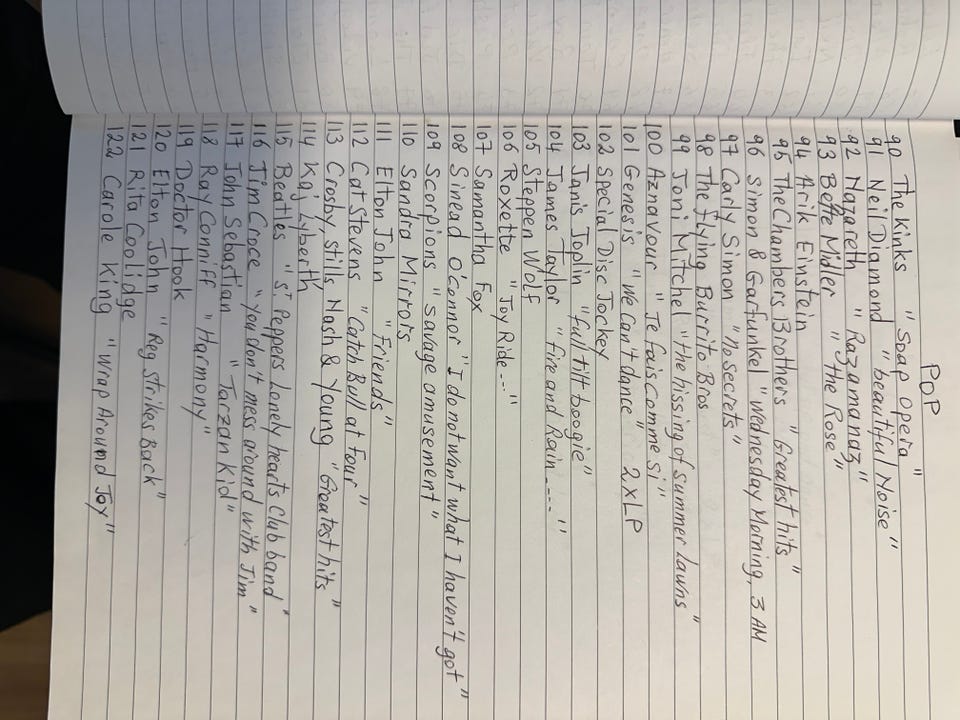 POP
90 The Kinks "Soap opera"
91 Neil Diamond "beautiful Noise"
92 Nazareth "Razamanaz"
93 Bette Midler "the Rose"
94 Arik Einstein
95 The Chambers Brothers "Greatest hits"
96 Simon & Garfunkel "Wednesday Morning, 3 AM
97 Carly Simon "no secrets"
98 The flying Burrito Bros
99 Joni Mitchel "the hissing of summer lawns"
100 Aznavour "Je fais comme si"
101 Genesis "We can't dance" 2xLP
102 Special Disc Jockey
103 Janis Joplin "full tilt boogie"
104 James Taylor "fire and Rain ...."
105 Steppen Wolf
106 Roxette "Joy Ride..."
107 Samantha Fox
108 Sinead O'Connor "I do not want what I haven't got"
109 Scorpions "savage amusement"
110 Sandra Mirrors
111 Elton John "Friends"
112 Cat Stevens "Catch Bull at four"
113 Crosby, Stills Nash & Young "Greatest hits"
114 Kaj Lyberth
115 Beatles "St Peppers Lonely hearts Club band"
116 Jim Croce "you don't mess around with Jim"
117 John Sebastian "Tarzan Kid"
118 Ray Conniff "Harmony"
119 Doctor Hook
120 Elton John "Reg Strikes Back"
121 Rita Coolidge
122 Carole King "Wrap Around Joy"